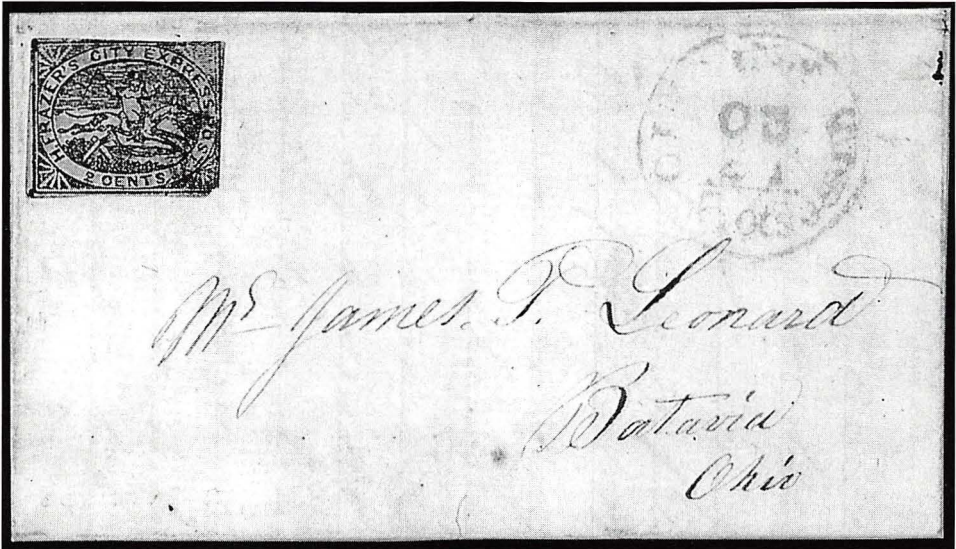 H. FRAZER'S CITY EXPRESS POST
2 CENTS
Mr James. T. Leonard
Batavia
Ohio